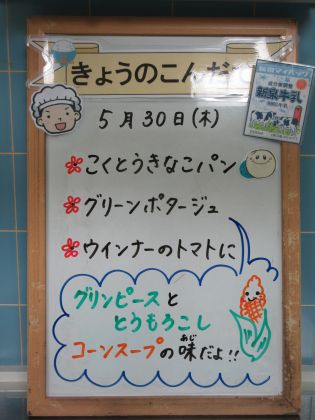 きょうのこんだて
新泉牛乳
5月30日(木)
こくとうきなこパン
グリーンポタージュ
ウインナーのトマトに
グリンピースと
とうもろこし
コーンスープの味だよ!!
あじ